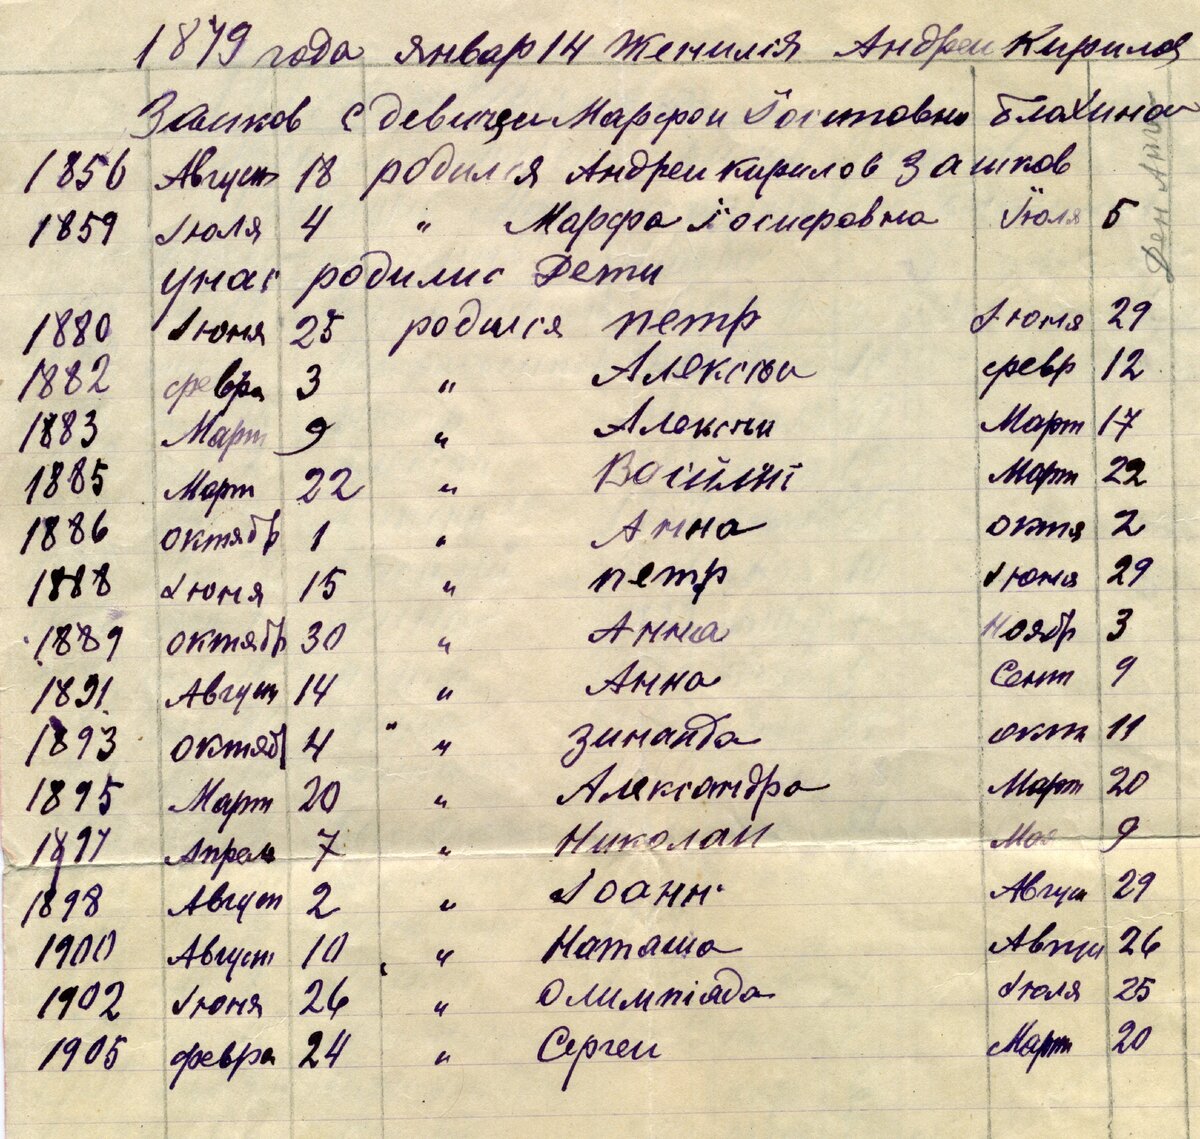 1879 года январ 14 Женилія Андреи Кирилов
Зашков с девицеи Марфои Іосиповно Блахинои
1856 Август 18 родился Андреи кирилов Зашков
1859 Іюля 4 " Марфа Іосифовна Іюля 5
унас родилис Дети
1880 Іюня 25 родился петр Іюня 29
1882 февра 3 " Алексѣи февр 12
1883 Март 9 " Алексѣи Март 17
1885 Март 22 " Март 22
1886 октябр 1 " Анна октя 2
1888 Іюня 15 " петр Іюня 29
1889 октябр 30 " Анна Ноябр 3
1891 Август 14 " Анна Сент 9
1893 октяб 4 " зинаида окт 11
1895 Март 20 " Александра Март 20
1897 Апрел 7 " Николаи Мая 9
1898 Август 2 " Іоанн Авгус 29
1900 Август 10 " Наташа Август 26
1902 Іюня 26 " олимпіада Іюля 25
1905 февра 24 " Сергеи Март 20
Ден Анг